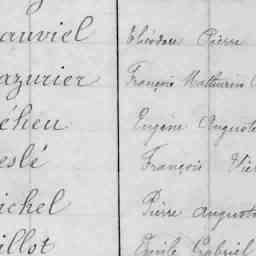 auviel Théodore Pierre
azurier François Mathurin
éheu Eugène Auguste
eslé François
ichel Pierre Auguste
illot Emile Gabriel